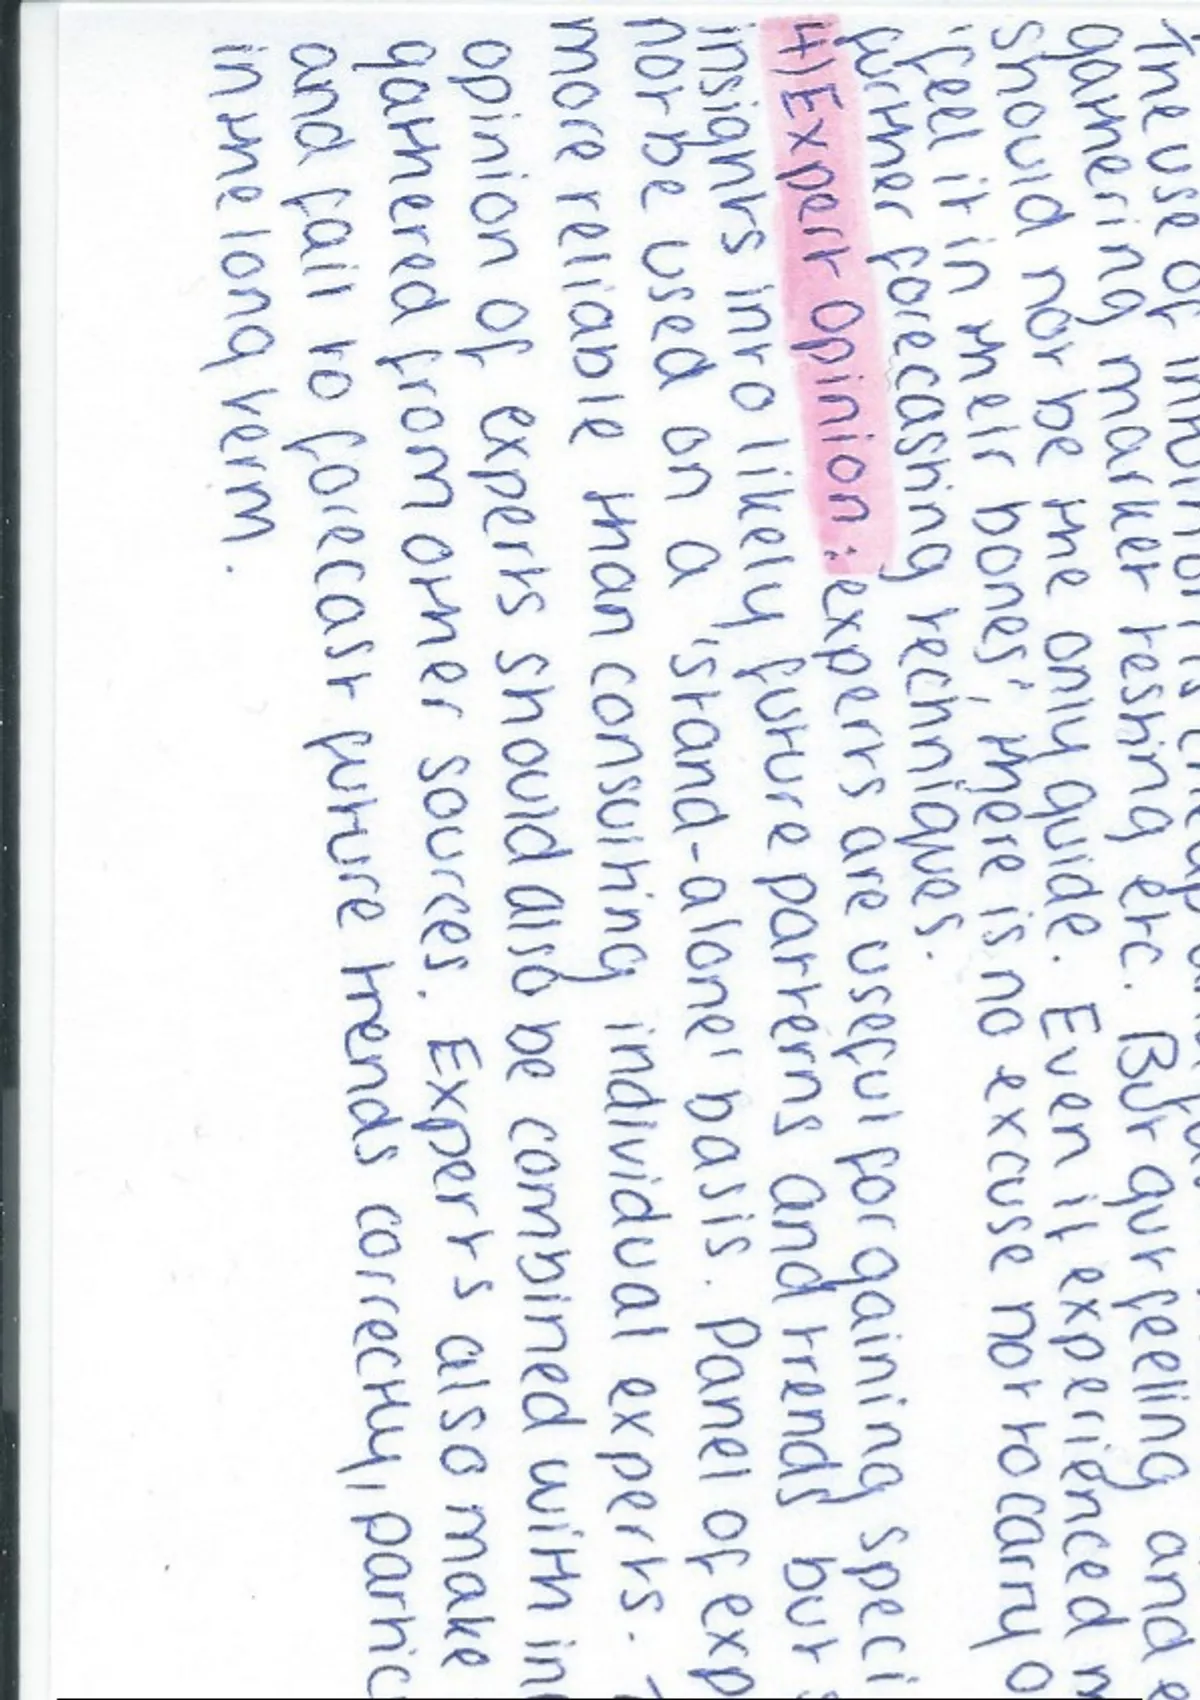 The use of intuition is
gathering market testing etc. But gut feeling and
should not be the only guide. Even if experienced
'feel it in their bones', there is no excuse not to carry
further forecasting techniques.
4) Expert Opinion: experts are useful for gaining speci
insights into likely future patterns and trends but
not be used on a 'stand-alone' basis. Panel of exp
more reliable than consulting individual experts.
opinion of experts should also be combined with in
gathered from other sources. Experts also make
and fail to forecast future trends correctly, partic
in the long term.